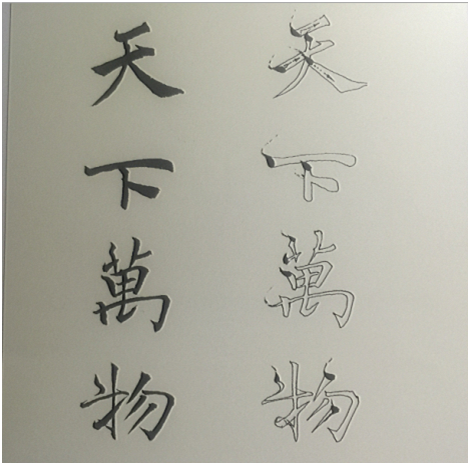 天下萬物
天下萬物